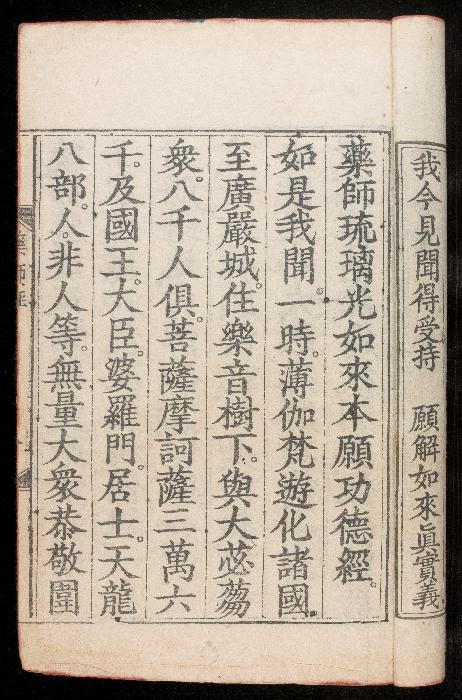 我今見聞得受持　願解如來眞實義
藥師琉璃光如來本願功德經。
如是我聞一時。薄伽梵遊化諸國。
至廣嚴城。住樂音樹下。與大苾蒭
衆。八千人俱。菩薩摩訶薩三萬六
千。及國王。大臣。婆羅門。居士。天龍
八部。人。非人等。無量大衆。恭敬圍